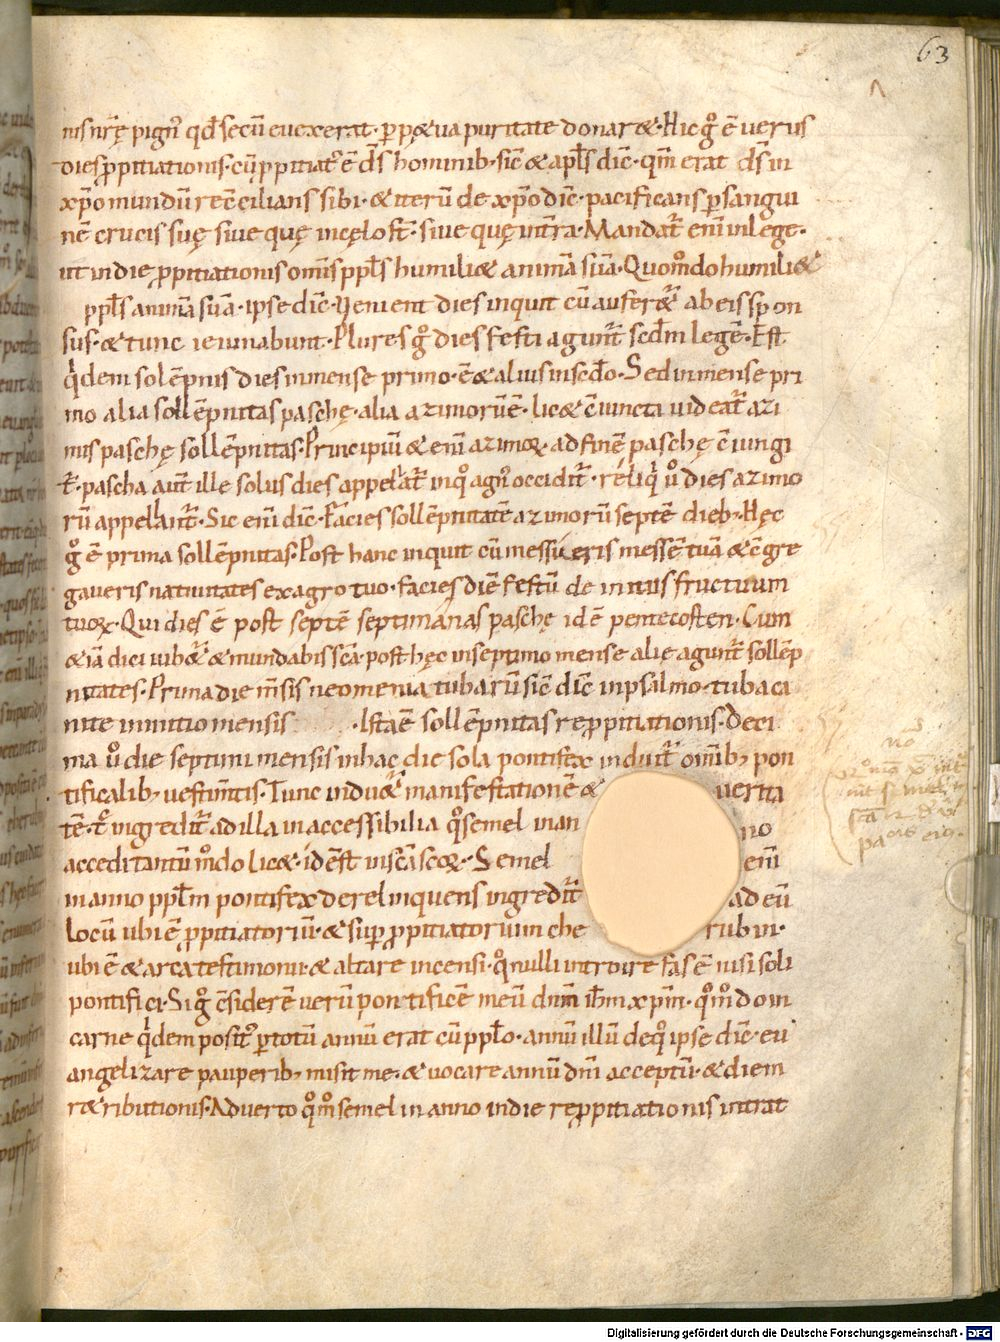 63
nis nr̃ę pign᷒ qđ secũ euexerat· p̱petua puritate donaret· Hic g̊ ẽ uerus
dies p̱pitiationis· cũ p̱pitiat᷒ ẽ d̃s hominib· sic̃ & apl̃s dic̃· qm̃ erat ds̃ in
xp̃o mundũ rec̃cilians sibi· & iterũ de xp̃o dic̃· pacificans p̱ sangui
nẽ crucis suę siue quę in cęlo st̃· siue quę in tr̃a· Mandat̃ enĩ in lege·
ut in die p̱pitiationis om̃is ppl̃s humiliet animã suã· Quom̊do humiliet
ppl̃s animã suã· ipse dic̃· Uenient dies inquit cũ auferet̃ ab eis sponsus· & tunc
sus· & tunc ieiunabunt· Plures g̊ dies festi agunt̃ secđm legẽ· Est
qͥdem solẽpnis dies in mense primo· ẽ & alius in secđo· Sed in mense pri
mo alia sollẽpnitas paschę· alia azimorũ ẽ· licet c̃iuncta uideat̃ azi
mis paschę sollẽpnitas· Principiũ & enĩ azimoꝝ· ad finẽ paschę c̃iungi
t̃· pascha aut̃ ille solus dies appellat̃ in q̊ agn᷒ occidit̃· reliqͥ ů dies azimo
rũ appellant̃· Sic enĩ dic̃· Facies sollẽpnitatẽ azimorũ septẽ dieb;· Hęc
g̊ ẽ prima sollẽpnitas· Post hanc inquit cũ messueris messẽ tuã & c̃gre
gaueris natiuitates ex agro tuo· facies diẽ festũ de initiis fructuum
tuoꝝ· Qui dies ẽ post septẽ septimanas paschę idẽ pentecosten· Cum
& iã dici iubet̃ & mundabis sc̃a· post hęc in septimo mense alię agunt̃ sollẽp
nitates· Prima die m̃sis neomenia tubarũ sic̃ dic̃ in psalmo· tuba ca
nite in initio mensis · Ista ẽ sollẽpnitas rep̱pitiationis· deci
ma ů die septimi mensis in hac die sola pontifex induit̃ omĩb; pon
tificalib; uestim̃tis· Tunc induet̃ manifestationẽ & uerita
tẽ· t̃ ingredit̃ ad illa inaccessibilia q̊ semel in an no
accedi tantũ m̊do licet· id est in sc̃a sc̃oꝝ· Semel enĩ
in anno ppl̃m pontifex derelinquens ingredit̃ ad eũ
locũ ubi ẽ p̱pitiatoriũ· & sup̱ p̱pitiatorium che rubin·
ubi ẽ & arca testimonii· & altare incensi· q̊ nulli introire fas ẽ nisi soli
pontifici· Si g̊ c̃siderẽ uerũ pontificẽ meũ dn̄m ih̃m xp̃m· q̊m̊do in
carne qͥdem posit᷒ p̱ totũ annũ erat cũ ppl̃o· annũ illũ de q̊ ipse dic̃· eu
angelizare pauperib; misit me· & uocare annũ dn̄i acceptũ· & diem
retributionis· Aduerto q̊m̊ semel in anno in die rep̱pitiationis intrat
Digitalisierung gefördert durch die Deutsche Forschungsgemeinschaft - DFG